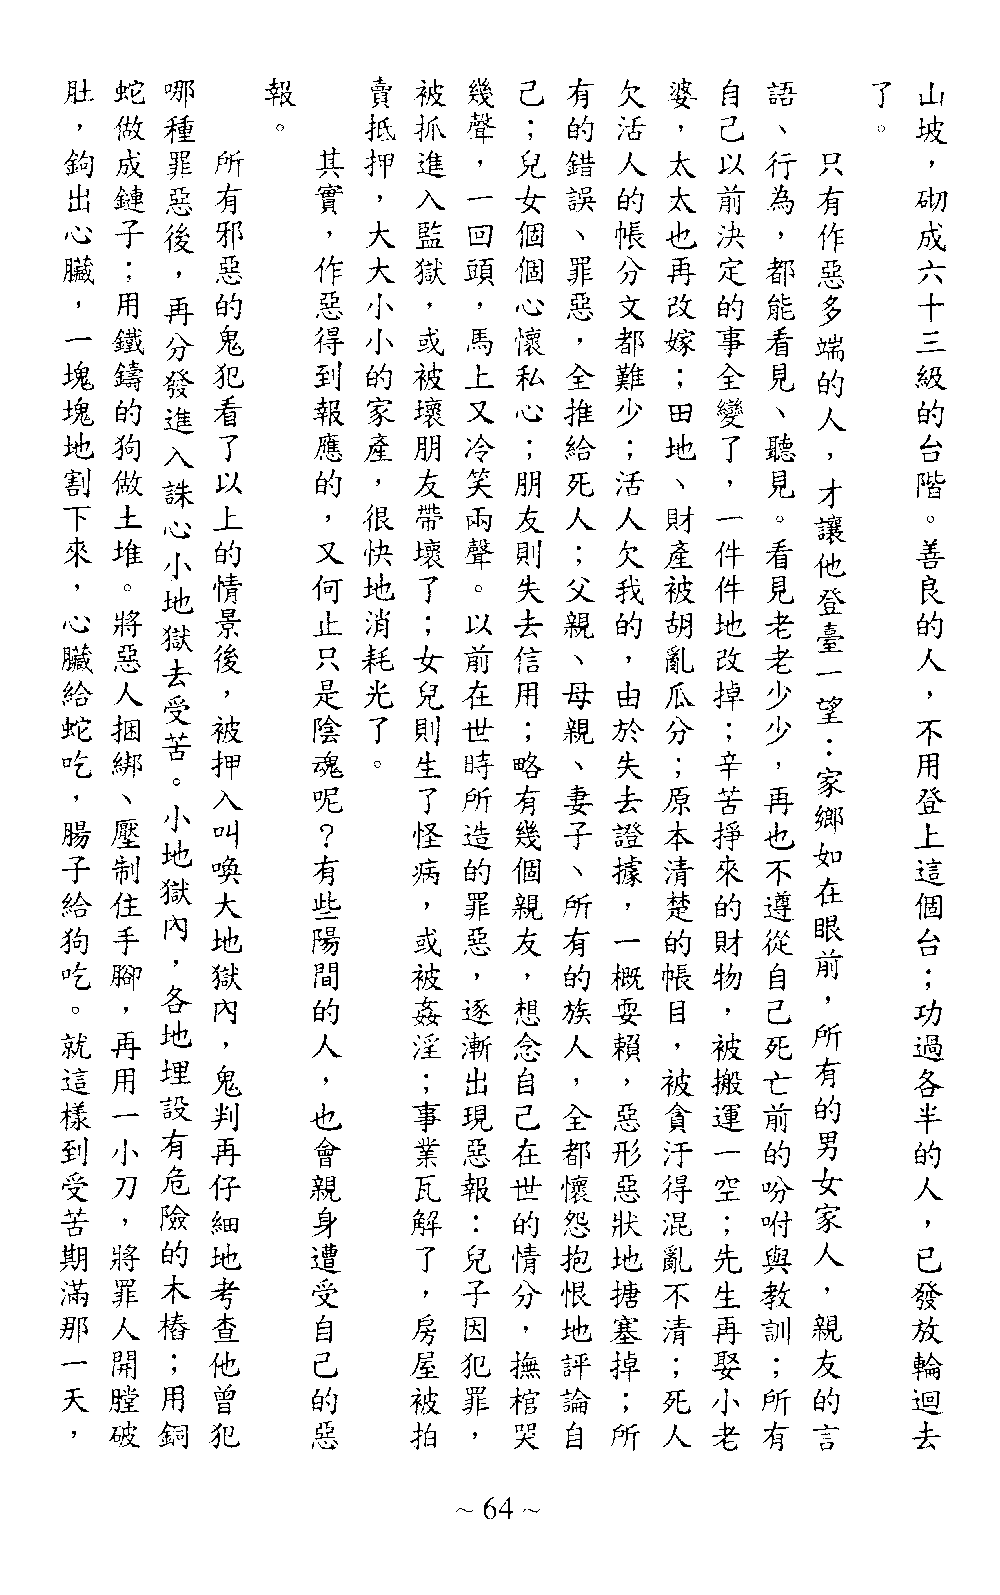 山坡，砌成六十三級的台階。善良的人，不用登上這個台；功過各半的人，已發放輪迴去
了。
只有作惡多端的人，才讓他登臺一望：家鄉如在眼前，所有的男女家人，親友的言
語、行為，都能看見、聽見。看見老老少少，再也不遵從自己死亡前的吩咐與教訓；所有
自己以前決定的事全變了，一件件地改掉；辛苦掙來的財物，被搬運一空；先生再娶小老
婆，太太也再改嫁；田地、財產被胡亂瓜分；原本清楚的帳目，被貪汙得混亂不清；死人
欠活人的帳分文都難少；活人欠我的，由於失去證據，一概耍賴，惡形惡狀地搪塞掉；所
有的錯誤、罪惡，全推給死人；父親、母親、妻子、所有的族人，全都懷怨抱恨地評論自
己；兒女個個心懷私心；朋友則失去信用；略有幾個親友，想念自己在世的情分，撫棺哭
幾聲，一回頭，馬上又冷笑兩聲。以前在世時所造的罪惡，逐漸出現惡報：兒子因犯罪，
被抓進入監獄，或被壞朋友帶壞了；女兒則生了怪病，或被姦淫；事業瓦解了，房屋被拍
賣抵押，大大小小的家產，很快地消耗光了。
其實，作惡得到報應的，又何止只是陰魂呢？有些陽間的人，也會親身遭受自己的惡
報。
所有邪惡的鬼犯看了以上的情景後，被押入叫喚大地獄內，鬼判再仔細地考查他曾犯
哪種罪惡後，再分發進入誅心小地獄去受苦。小地獄內，各地埋設有危險的木樁；用銅
蛇做成鏈子；用鐵鑄的狗做土堆。將惡人捆綁、壓制住手腳，再用一小刀，將罪人開膛破
肚，鉤出心臟，一塊塊地割下來，心臟給蛇吃，腸子給狗吃。就這樣到受苦期滿那一天，
~ 64 ~